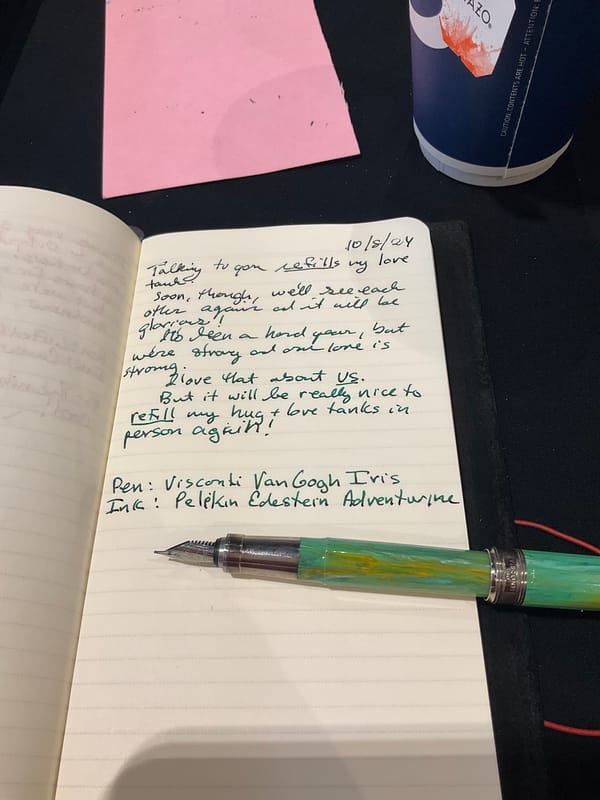 AZO®
CAUTION: CONTENTS ARE HOT – ATTENTION:
10/8/24
Talking to you refills my love
tank.
Soon, though, we'll see each
other again and it will be
glorious!
It's been a hard year, but
we're strong and our love is
strong.
I love that about us.
But it will be really nice to
refill my hug + love tanks in
person again!
Pen: Visconti VanGogh Iris
Ink: Pelikan Edestein Adventurine
VISCONTI